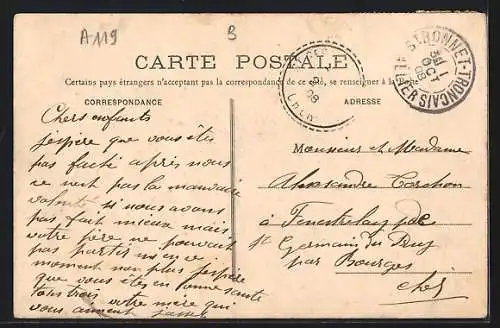 A119
B
CARTE POSTALE
Certains pays étrangers n'acceptant pas la correspondance de ce côté, se renseigner à la Poste
CORRESPONDANCE
ADRESSE
St BONNET-TRONÇAIS
ALLIER
31
OCT
08
CHER
08
Chers enfants
j'espère que vous êtes
pas faché apris nous
ce n'est pas la mauvaise
volonté si nous avons
pas fait mieux mais
votre père ne pouvait
pas partir en ce
moment non plus j'espère
que vous êtes en bonne santé
tous trois votre mère qui
vous aiment
Monsieur et Madame
Alexandre
à
St Germain du Puy
par Bourges
Cher